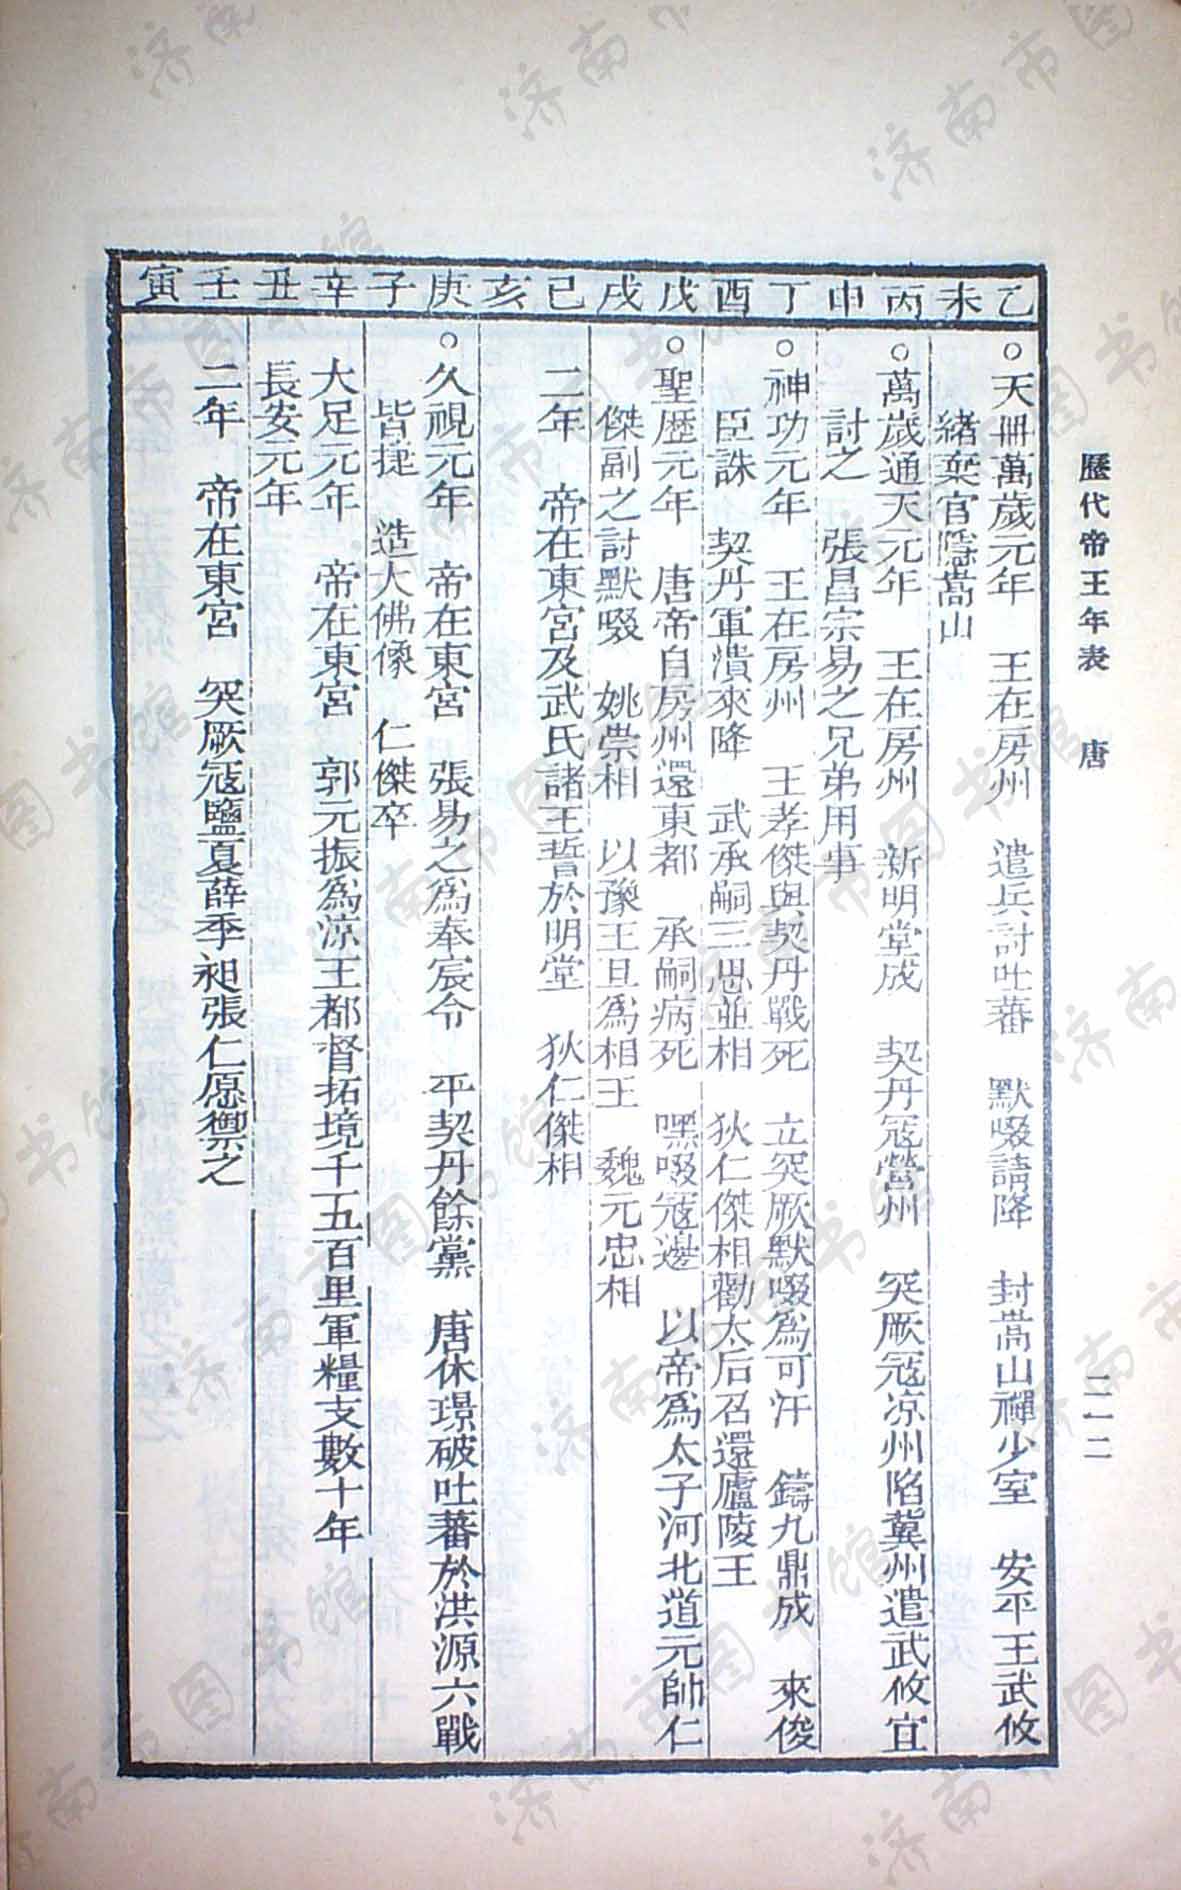 歷代帝王年表　唐　二一二
乙未　丙申　丁酉　戊戌　己亥　庚子　辛丑　壬寅
○天冊萬歲元年　王在房州　遣兵討吐蕃　默啜請降　封嵩山禪少室　安平王武攸
緒棄官隱嵩山
○萬歲通天元年　王在房州　新明堂成　契丹寇營州　突厥寇凉州陷冀州遣武攸宜
討之　張昌宗易之兄弟用事
○神功元年　王在房州　王孝傑與契丹戰死　立突厥默啜爲可汗　鑄九鼎成　來俊
臣誅　契丹軍潰來降　武承嗣三思並相　狄仁傑相勸太后召還廬陵王
○聖歷元年　唐帝自房州還東都　承嗣病死　嘿啜寇邊　以帝爲太子河北道元帥仁
傑副之討默啜　姚崇相　以豫王旦爲相王　魏元忠相
二年　帝在東宮及武氏諸王誓於明堂　狄仁傑相
○久視元年　帝在東宮　張易之爲奉宸令　平契丹餘黨　唐休璟破吐蕃於洪源六戰
皆捷　造大佛像　仁傑卒
大足元年　帝在東宮　郭元振爲涼王都督拓境千五百里軍糧支數十年
長安元年
二年　帝在東宮　突厥寇鹽夏薛季昶張仁愿禦之
济南市图书馆